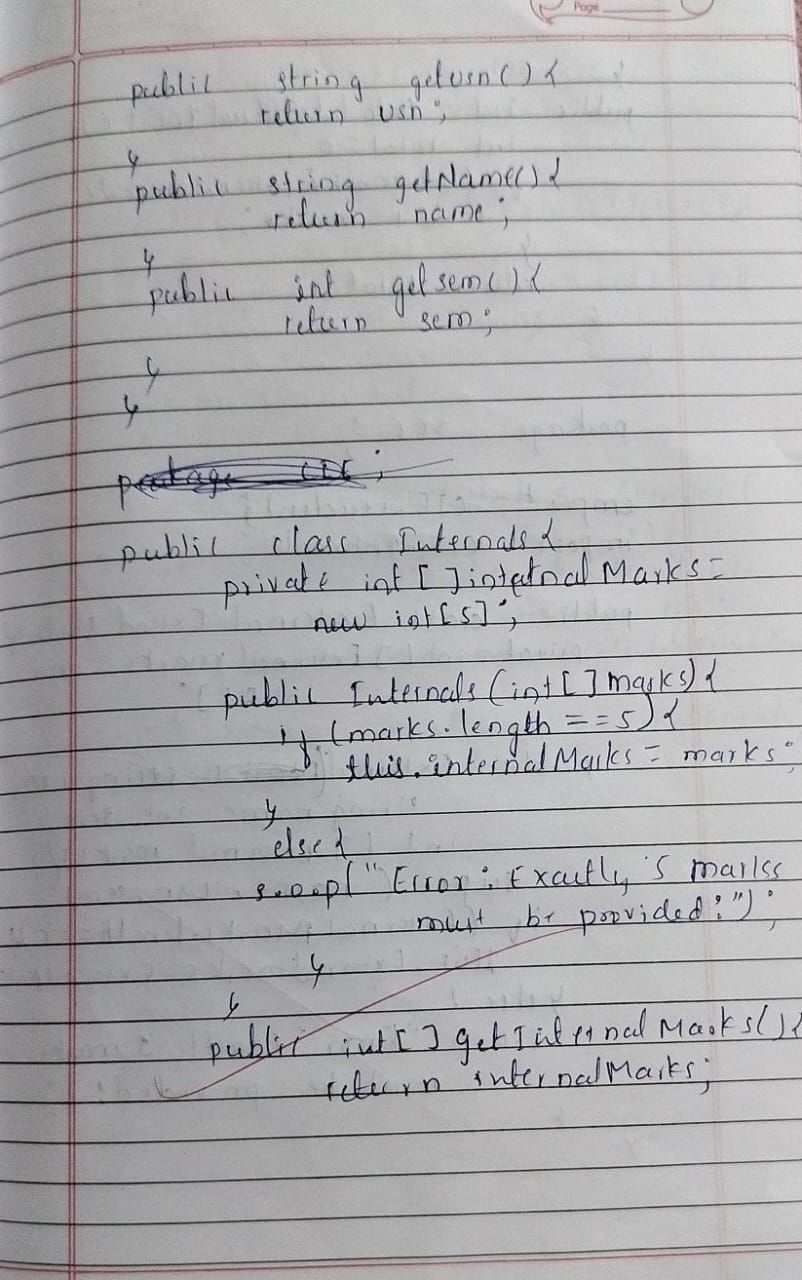 Page
public string getusn() {
return usn;
}
public string getName() {
return name;
}
public int getsem() {
return sem;
}
}
public class Internals {
private int [ ] internal Marks =
new int [5];
public Internals (int [ ] marks) {
if (marks.length == 5) {
this.internalMarks = marks;
}
else {
s.o.p( "Error: Exactly 5 marks
must be provided:");
}
}
public int [ ] getInternalMarks() {
return internalMarks;